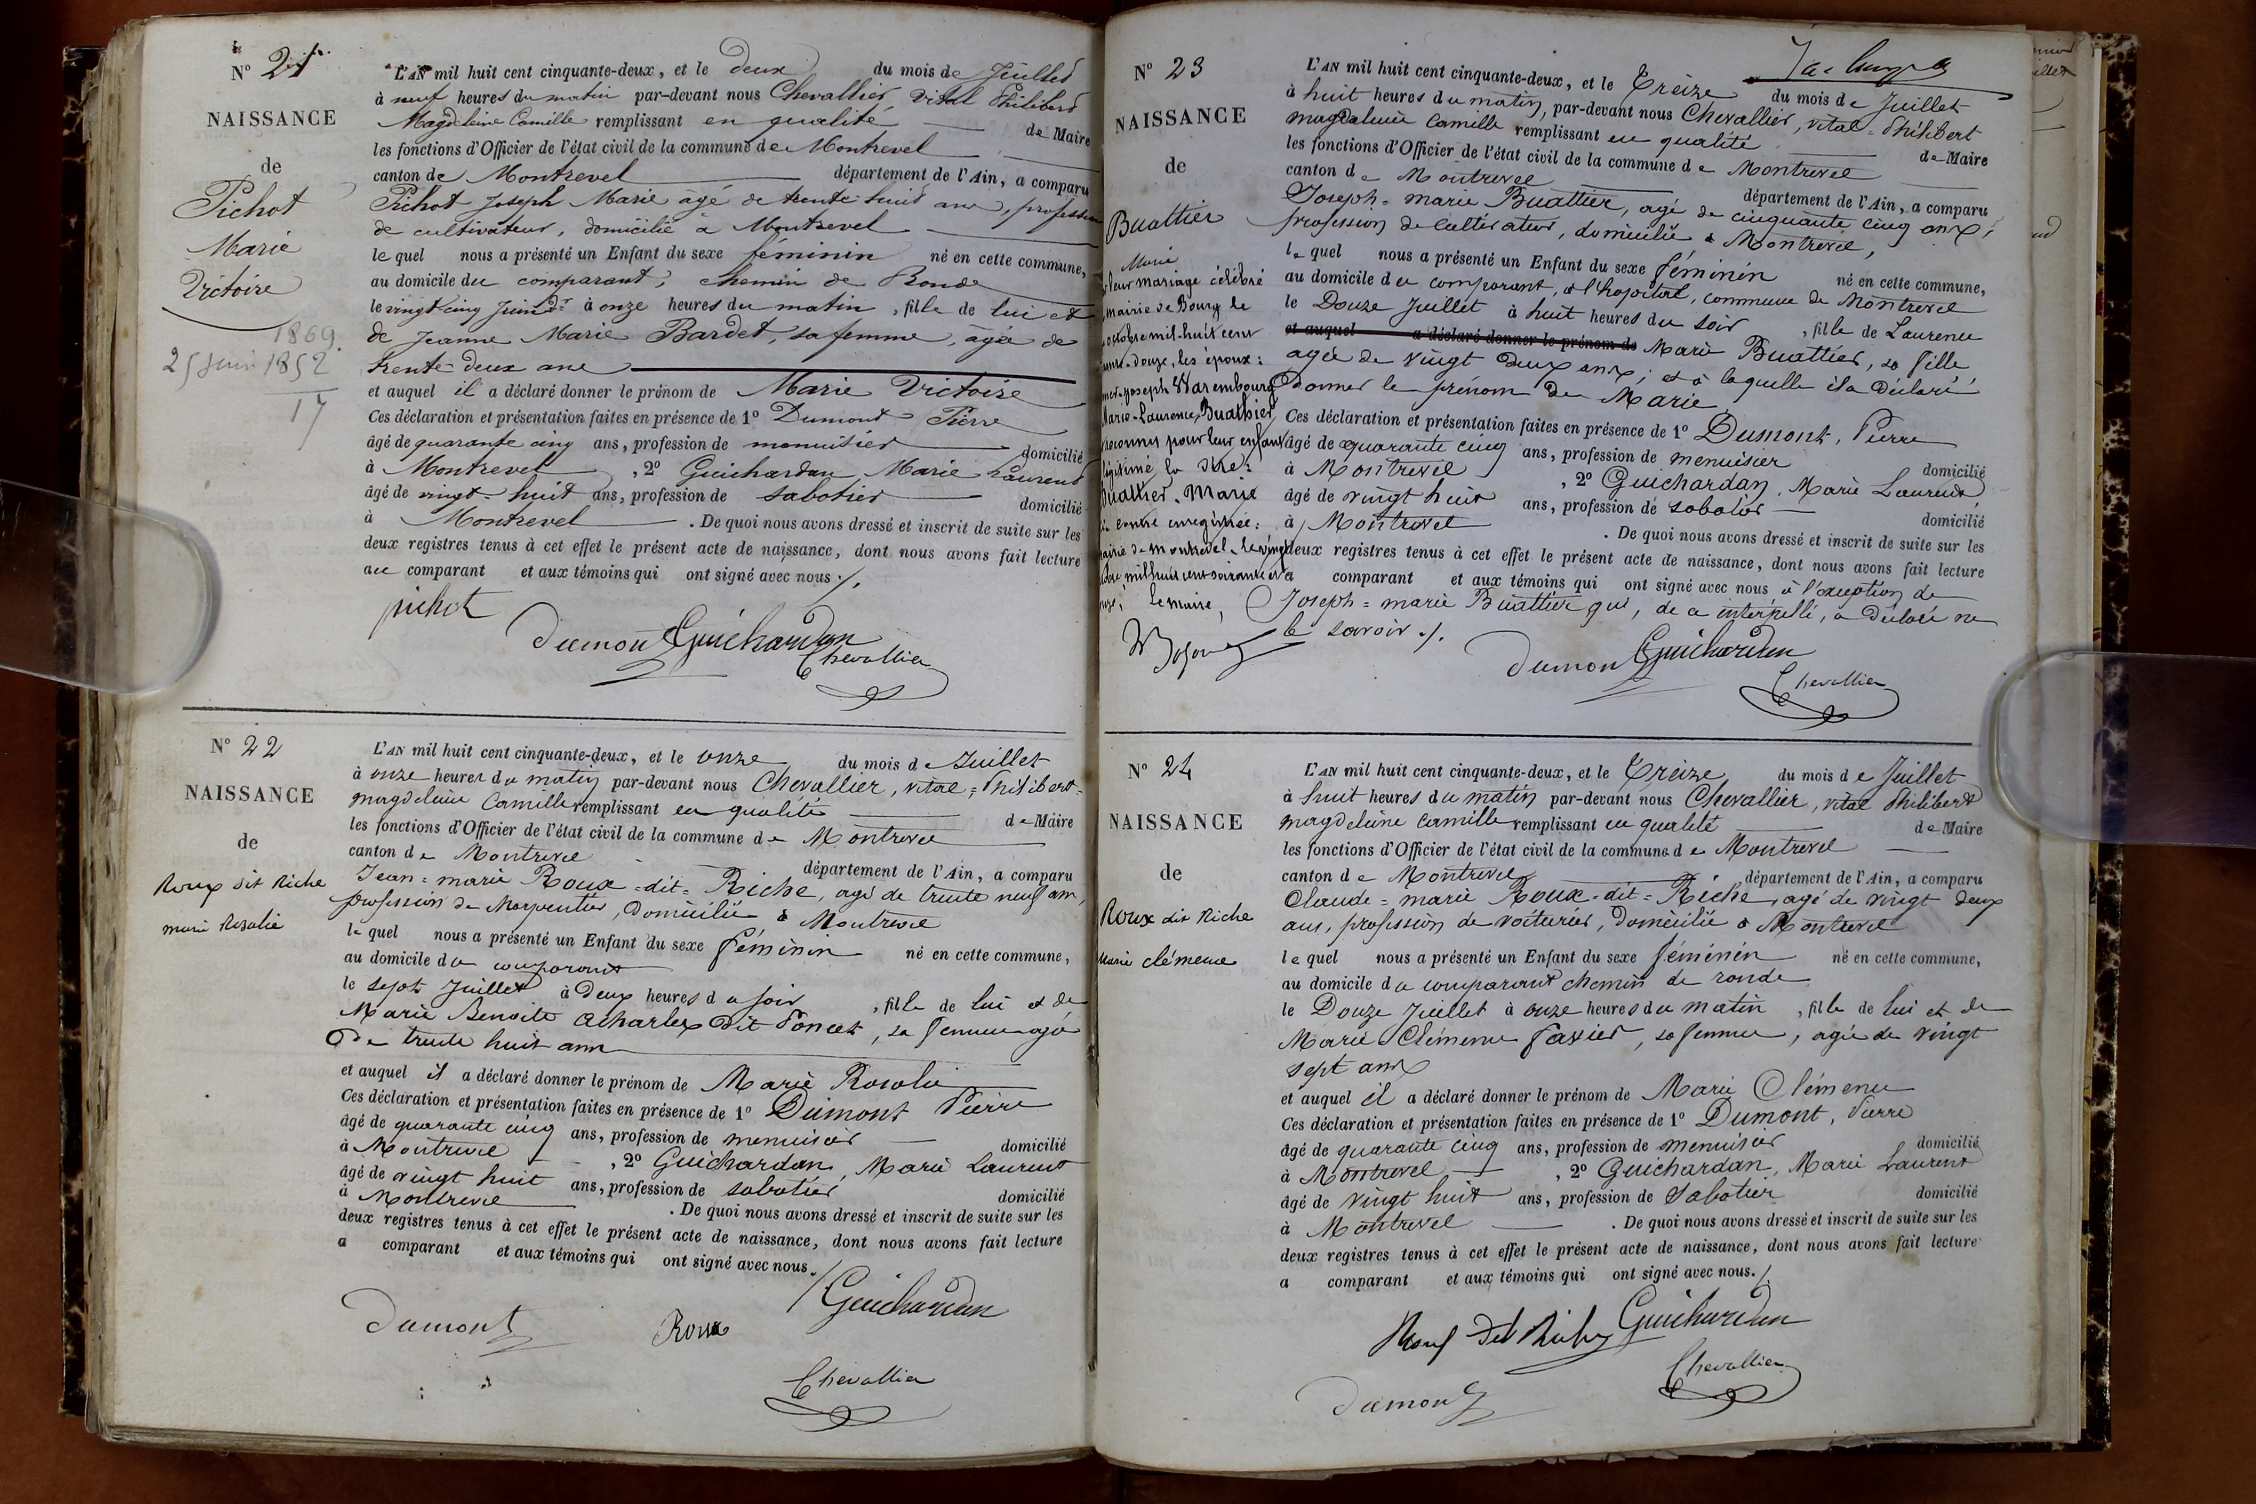 N° 21
NAISSANCE
de
Pichot
Marie
Victoire
1869
25 Juin 1852
17
L'AN mil huit cent cinquante-deux, et le deux du mois de Juillet
à neuf heures du matin par-devant nous Chevallier, Vital Philibert
Magdeleine Camille remplissant en qualité de Maire
les fonctions d'Officier de l'état civil de la commune de Montrevel
canton de Montrevel département de l'Ain, a comparu
Pichot Joseph Marie âgé de trente huit ans, profession
de cultivateur, domicilié à Montrevel
lequel nous a présenté un Enfant du sexe féminin né en cette commune,
au domicile du comparant, chemin de Ronde
le vingt cinq Juin dr à onze heures du matin, fille de lui et
de Jeanne Marie Bardet, sa femme, âgée de
trente-deux ans
et auquel il a déclaré donner le prénom de Marie Victoire
Ces déclaration et présentation faites en présence de 1° Dumont Pierre
âgé de quarante cinq ans, profession de menuisier domicilié
à Montrevel, 2° Guichardan Marie Laurent
âgé de vingt-huit ans, profession de sabotier domicilié
à Montrevel. De quoi nous avons dressé et inscrit de suite sur les
deux registres tenus à cet effet le présent acte de naissance, dont nous avons fait lecture
au comparant et aux témoins qui ont signé avec nous ./.
pichot
Dumont Guichardan
Chevallier
N° 22
NAISSANCE
de
Roux dit Riche
marie Rosalie
L'AN mil huit cent cinquante-deux, et le onze du mois de Juillet
à onze heures du matin par-devant nous Chevallier, vital = Philibert =
magdeleine Camille remplissant en qualité de Maire
les fonctions d'Officier de l'état civil de la commune de Montrevel
canton de Montrevel département de l'Ain, a comparu
Jean = marie Roux = dit = Riche, agé de trente neuf ans,
profession de Charpentier, domicilié à Montrevel
le quel nous a présenté un Enfant du sexe féminin né en cette commune,
au domicile du comparant
le sept Juillet à Deux heures du soir, fille de lui et de
Marie Benoite Acharlex Dit Poncet, sa femme agée
De trente huit ans
et auquel il a déclaré donner le prénom de Marie Rosalie
Ces déclaration et présentation faites en présence de 1° Dumont Pierre
âgé de quarante cinq ans, profession de menuisier domicilié
à Montrevel, 2° Guichardan, Marie Laurent
âgé de vingt huit ans, profession de sabotier domicilié
à Montrevel. De quoi nous avons dressé et inscrit de suite sur les
deux registres tenus à cet effet le présent acte de naissance, dont nous avons fait lecture
a comparant et aux témoins qui ont signé avec nous ./
Guichardan
Dumont Roux
Chevallier
N° 23
NAISSANCE
de
Buattier
Marie
leur mariage célébré
mairie de Bourg le
octobre mil-huit cent
douze, les époux:
Joseph Warembourg
Marie-Laurence Buathier
reconnu pour leur enfant
légitimé la dite:
Buathier. Marie
contre enregistrée:
mairie de Montrevel le vingt
mil huit cent soixante et
le maire,
L'AN mil huit cent cinquante-deux, et le Treize du mois de Juillet
à huit heures du matin, par-devant nous Chevallier, vital = Philibert
magdeleine Camille remplissant en qualité de Maire
les fonctions d'Officier de l'état civil de la commune de Montrevel
canton de Montrevel département de l'Ain, a comparu
Joseph = marie Buattier, agé de cinquante cinq ans,
profession de cultivateur, domicilié à Montrevel,
le quel nous a présenté un Enfant du sexe féminin né en cette commune,
au domicile du comparant, à l'hopital, commune de Montrevel
le Douze Juillet à huit heures du soir, fille de Laurence
et auquel a déclaré donner le prénom de Marie Buattier, sa fille
agée de vingt Deux ans; et à laquelle il a déclaré
donner le prénom de Marie
Ces déclaration et présentation faites en présence de 1° Dumont, Pierre
âgé de quarante cinq ans, profession de menuisier domicilié
à Montrevel, 2° Guichardan, Marie Laurent
âgé de vingt huit ans, profession de sabotier domicilié
à Montrevel. De quoi nous avons dressé et inscrit de suite sur les
deux registres tenus à cet effet le présent acte de naissance, dont nous avons fait lecture
a comparant et aux témoins qui ont signé avec nous à l'exception de
Joseph = marie Buattier qui, de ce interpellé, a déclaré ne
le savoir ./.
Dumont Guichardan
Chevallier
N° 24
NAISSANCE
de
Roux dit Riche
Marie Clémence
L'AN mil huit cent cinquante-deux, et le Treize du mois de Juillet
à huit heures du matin par-devant nous Chevallier, vital Philibert
magdeleine Camille remplissant en qualité de Maire
les fonctions d'Officier de l'état civil de la commune de Montrevel
canton de Montrevel département de l'Ain, a comparu
Claude = marie Roux = dit = Riche, agé de vingt deux
ans, profession de voiturier, domicilié à Montrevel
le quel nous a présenté un Enfant du sexe féminin né en cette commune,
au domicile du comparant chemin de ronde
le Douze Juillet à onze heures du matin, fille de lui et de
Marie Clémence favier, sa femme, agée de vingt
sept ans
et auquel il a déclaré donner le prénom de Marie Clémence
Ces déclaration et présentation faites en présence de 1° Dumont, Pierre
âgé de quarante cinq ans, profession de menuisier domicilié
à Montrevel, 2° Guichardan, Marie Laurent
âgé de vingt huit ans, profession de sabotier domicilié
à Montrevel. De quoi nous avons dressé et inscrit de suite sur les
deux registres tenus à cet effet le présent acte de naissance, dont nous avons fait lecture
a comparant et aux témoins qui ont signé avec nous ./.
Roux Dit Riche Guichardan
Chevallier
Dumont